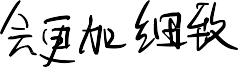 会更加细致